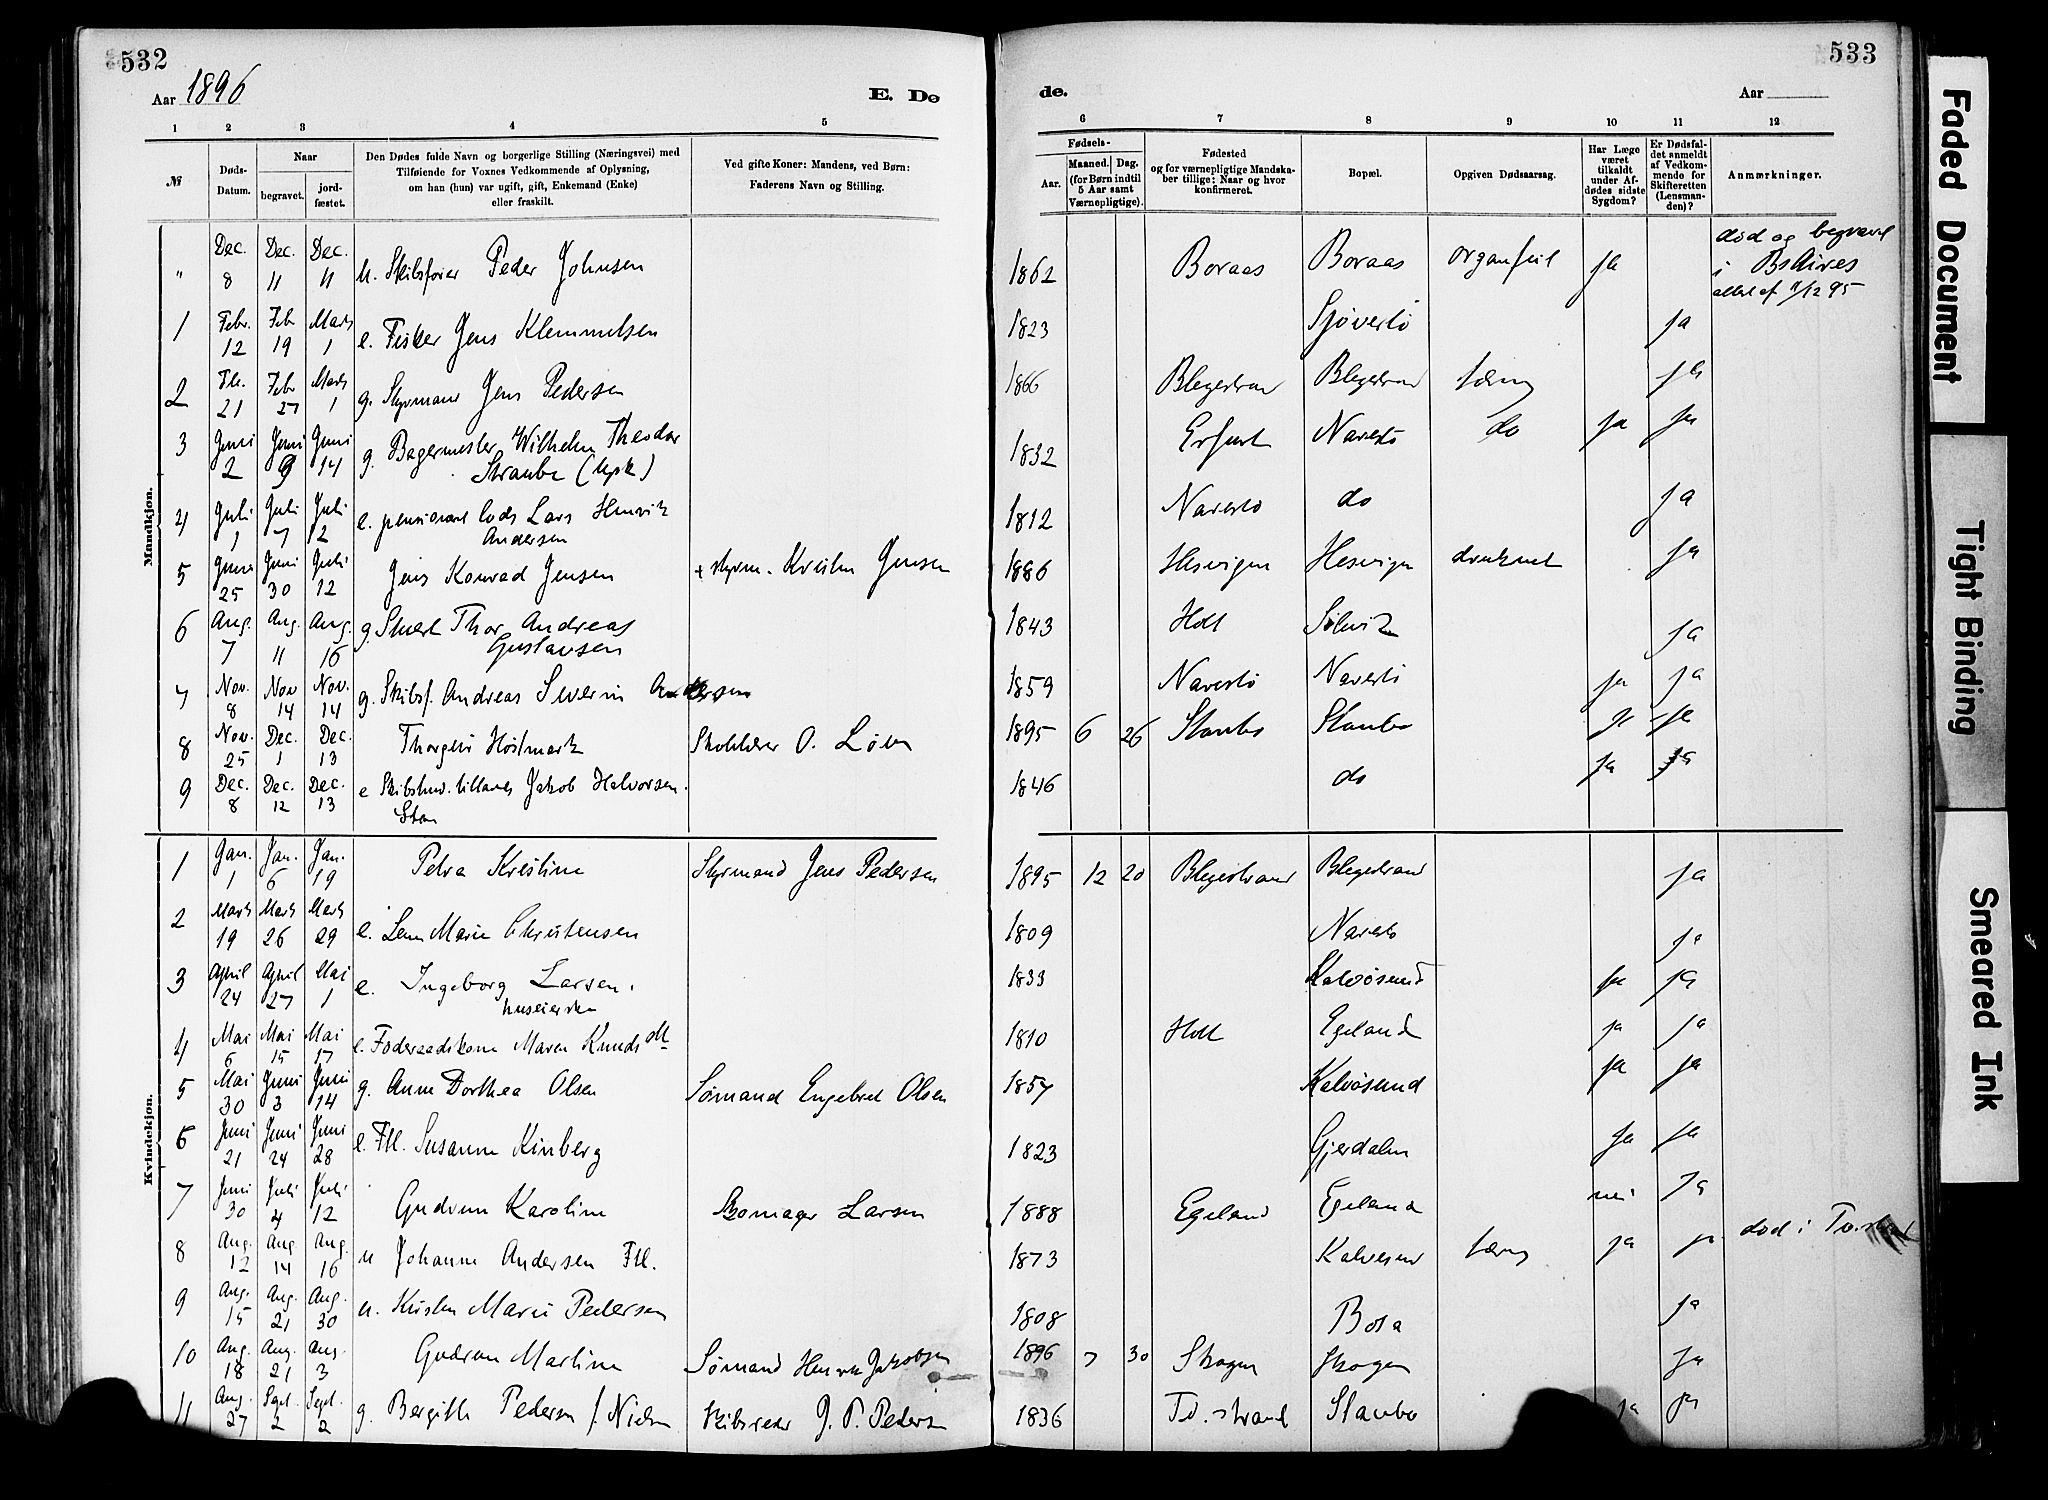 532
Aar 1896
E. Dø
1 2 3 4 5
№
Døds-Datum.
Naar
begravet.
jord-fæstet.
Den Dødes fulde Navn og borgerlige Stilling (Næringsvei) med
Tilføiende for Voxnes Vedkommende af Oplysning,
om han (hun) var ugift, gift, Enkemand (Enke)
eller fraskilt.
Ved gifte Koner: Mandens, ved Børn:
Faderens Navn og Stilling.
Mandkjøn.
" Dec. 8 Dec. 11 Dec. 11 u. Skibsfører Peder Johnsen
1 Febr. 12 Feb 19 Marts 1 e. Fisker Jens Klemmetsen
2 Feb. 21 Febr 27 Marts 1 g. Styrmand Jens Pedersen
3 Juni 2 Juni 9 Juni 14 g. Bagermester Wilhelm Theodor
Straube
4 Juli 1 Juli 7 Juli 12 e. pensioneret Lods Lars Henrik
Andersen
5 Juni 25 Juni 30 Juli 12 Jens Konrad Jensen + styrm. Kristen Jensen
6 Aug. 7 Aug. 11 Aug. 16 g. Thor Andreas
Gustavsen
7 Nov. 8 Nov 14 Nov. 14 g. Skibsf. Andreas Severin Andersen
8 Nov. 25 Dec. 1 Dec. 13 Thorgeir Høstmark Skolelærer O. Løken
9 Dec. 8 Dec. 12 Dec. 13 e Jakob Halvorsen
Kvindekjøn.
1 Jan. 1 Jan. 6 Jan. 19 Petra Kristine Styrmand Jens Pedersen
2 Marts 19 Marts 26 Marts 29 e. Lene Marie Christensen
3 April 24 April 27 Mai 1 e. Ingeborg Larsen.
huseierske
4 Mai 6 Mai 15 Mai 17 e. Føderaadskone Maren Knudsdtr
5 Mai 30 Juni 3 Juni 14 g. Anne Dorthea Olsen Sømand Engebret Olsen
6 Juni 21 Juni 24 Juni 28 e. Susanne Kinberg
7 Juni 30 Juli 4 Juli 12 Gudrun Karoline Larsen
8 Aug. 12 Aug. 14 Aug. 16 u Johanne Andersen
9 Aug. 15 Aug. 21 Aug. 30 u. Kirsten Marie Pedersen
10 Aug. 18 Aug. 21 Aug. 3 Gudrun Martine Sømand Henrik Jakobsen
11 Aug. 27 Sept. 2 Sept. 2 g. Bergitte Pedersen f. Nielsen Skibsreder J. P. Pedersen
533
de.
Aar
6 7 8 9 10 11 12
Fødsels-
Aar.
Maaned.
Dag.
(for Børn indtil
5 Aar samt
Værnepligtige).
Fødested
og for værnepligtige Mandska-
ber tillige: Naar og hvor
konfirmeret.
Bopæl.
Opgiven Dødsaarsag.
Har Læge
været
tilkaldt
under Af-
dødes sidste
Sygdom?
Er Dødsfal-
det anmeldt
af Vedkom-
mende for
Skifteretten
(Lensman-
den)?
Anmærkninger.
1862 Boraas Boraas organfeil ja død og begravet
i Bs Aires
attest af 11/12 95
1823 Sjøverstø ja
1866 Blegestrand Blegestrand tæring ja
1832 Erfurt Narestø do ja ja
1812 Narestø do ja
1886 Hesvigen Hesvigen druknet ja
1843 Holt Solevik ja
1859 Narestø Narestø ja ja
1895 6 26 Staubo Staubo ja ja
1846 do ja ja
1895 12 20 Blegestrand Blegestrand ja
1809 Narestø ja
1833 Kalvøsund ja ja
1810 Holt Egeland ja ja
1857 Kalvøsund ja ja
1823 Gjerdalen ja ja
1888 Egeland Egeland nei ja
1873 Kalvøsund tæring ja ja død i Tv.strand
1808 Bota ja
1896 7 30 Skogen Skogen ja
1836 Tv.strand Staubo ja ja
Faded Document
Tight Binding
Smeared Ink